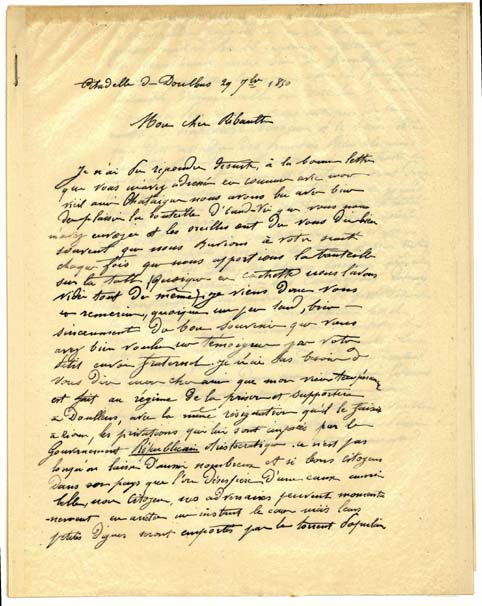 Citadelle de Doullens 29 7bre 1850
Mon cher Ribault
Je n'ai pu repondre ensuite, à la bonne lettre
que vous m'avez adressée en commun avec mon
vieil ami Chataigné nous avons bu avec bien
du plaisir la bouteille d'eau-de-vie que vous nous
avez envoyé et les oreilles ont du vous tinter bien
souvent car nous buvions à votre santé
chaque fois que nous apportions la bouteille
sur la table (quoique en cachette nous l'avons
vidé tout de même) je viens donc vous
remercier, quoique un peu tard, bien
sincerement du bon souvenir que vous
avez bien voulu me temoigner par votre
petit envoi fraternel. Je n'ai pas besoin de
vous dire mon cher ami que mon vieux
est fait au régime de la prison et supportera
à Doullens, avec la même résignation qu'il le faisait
à les privations qui lui sont imposées par le
Gouvernement Républicain Aristocratique. ce n'est pas
lorsqu'on laisse d'aussi nombreux et si bons citoyens
dans son pays que l'on désespère d'une cause aussi
belle, non Citoyen, nos adversaires peuvent momenta
nement en arreter un instant le cours mais leurs
petites digues seront emportés par le torrent